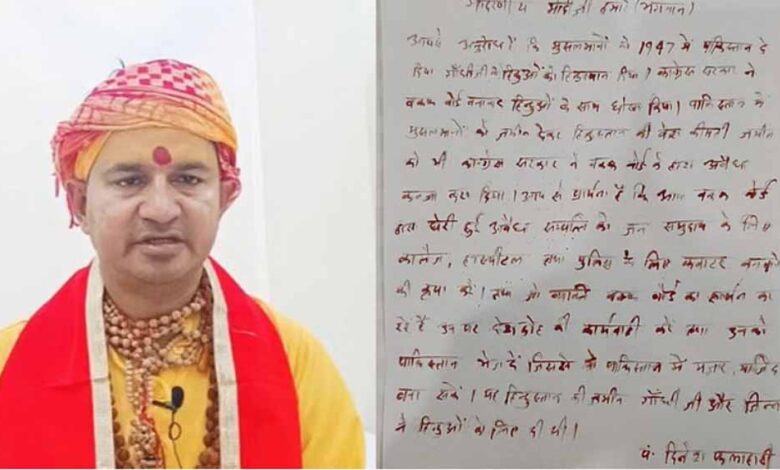 मोदी जी हमारे (भगवान)
आपसे अनुरोध है कि मुसलमानों को 1947 में पाकिस्तान दे
दिया गाँधी जी ने हिन्दुओं को हिन्दुस्तान दिया। कांग्रेस सरकार ने
वक्फ बोर्ड बनाकर हिन्दुओं के साथ धोखा दिया। पाकिस्तान में
मुसलमानों को जमीन देकर हिन्दुस्तान की बेश कीमती जमीन
को भी कांग्रेस सरकार ने वक्फ बोर्ड के द्वारा अवैध
कब्जा करा दिया। आप से प्रार्थना है कि आप वक्फ बोर्ड
द्वारा घेरी हुई अवैध सम्पत्ति को जन समुदाय के लिए
कालेज, हास्पीटल तथा पुलिस के लिए क्वाटर बनवाने
की कृपा करें। तथा जो व्यक्ति वक्फ बोर्ड का समर्थन कर
रहे हैं उन पर देशद्रोह की कार्यवाही करें तथा उनको
पाकिस्तान भेज दें जिससे वे पाकिस्तान में मजार, मस्जिद
बना सकें। यह हिन्दुस्तान की जमीन गाँधी जी और जिन्ना
ने हिन्दुओं के लिए दी थी।
पं. दिनेश फलाहारी